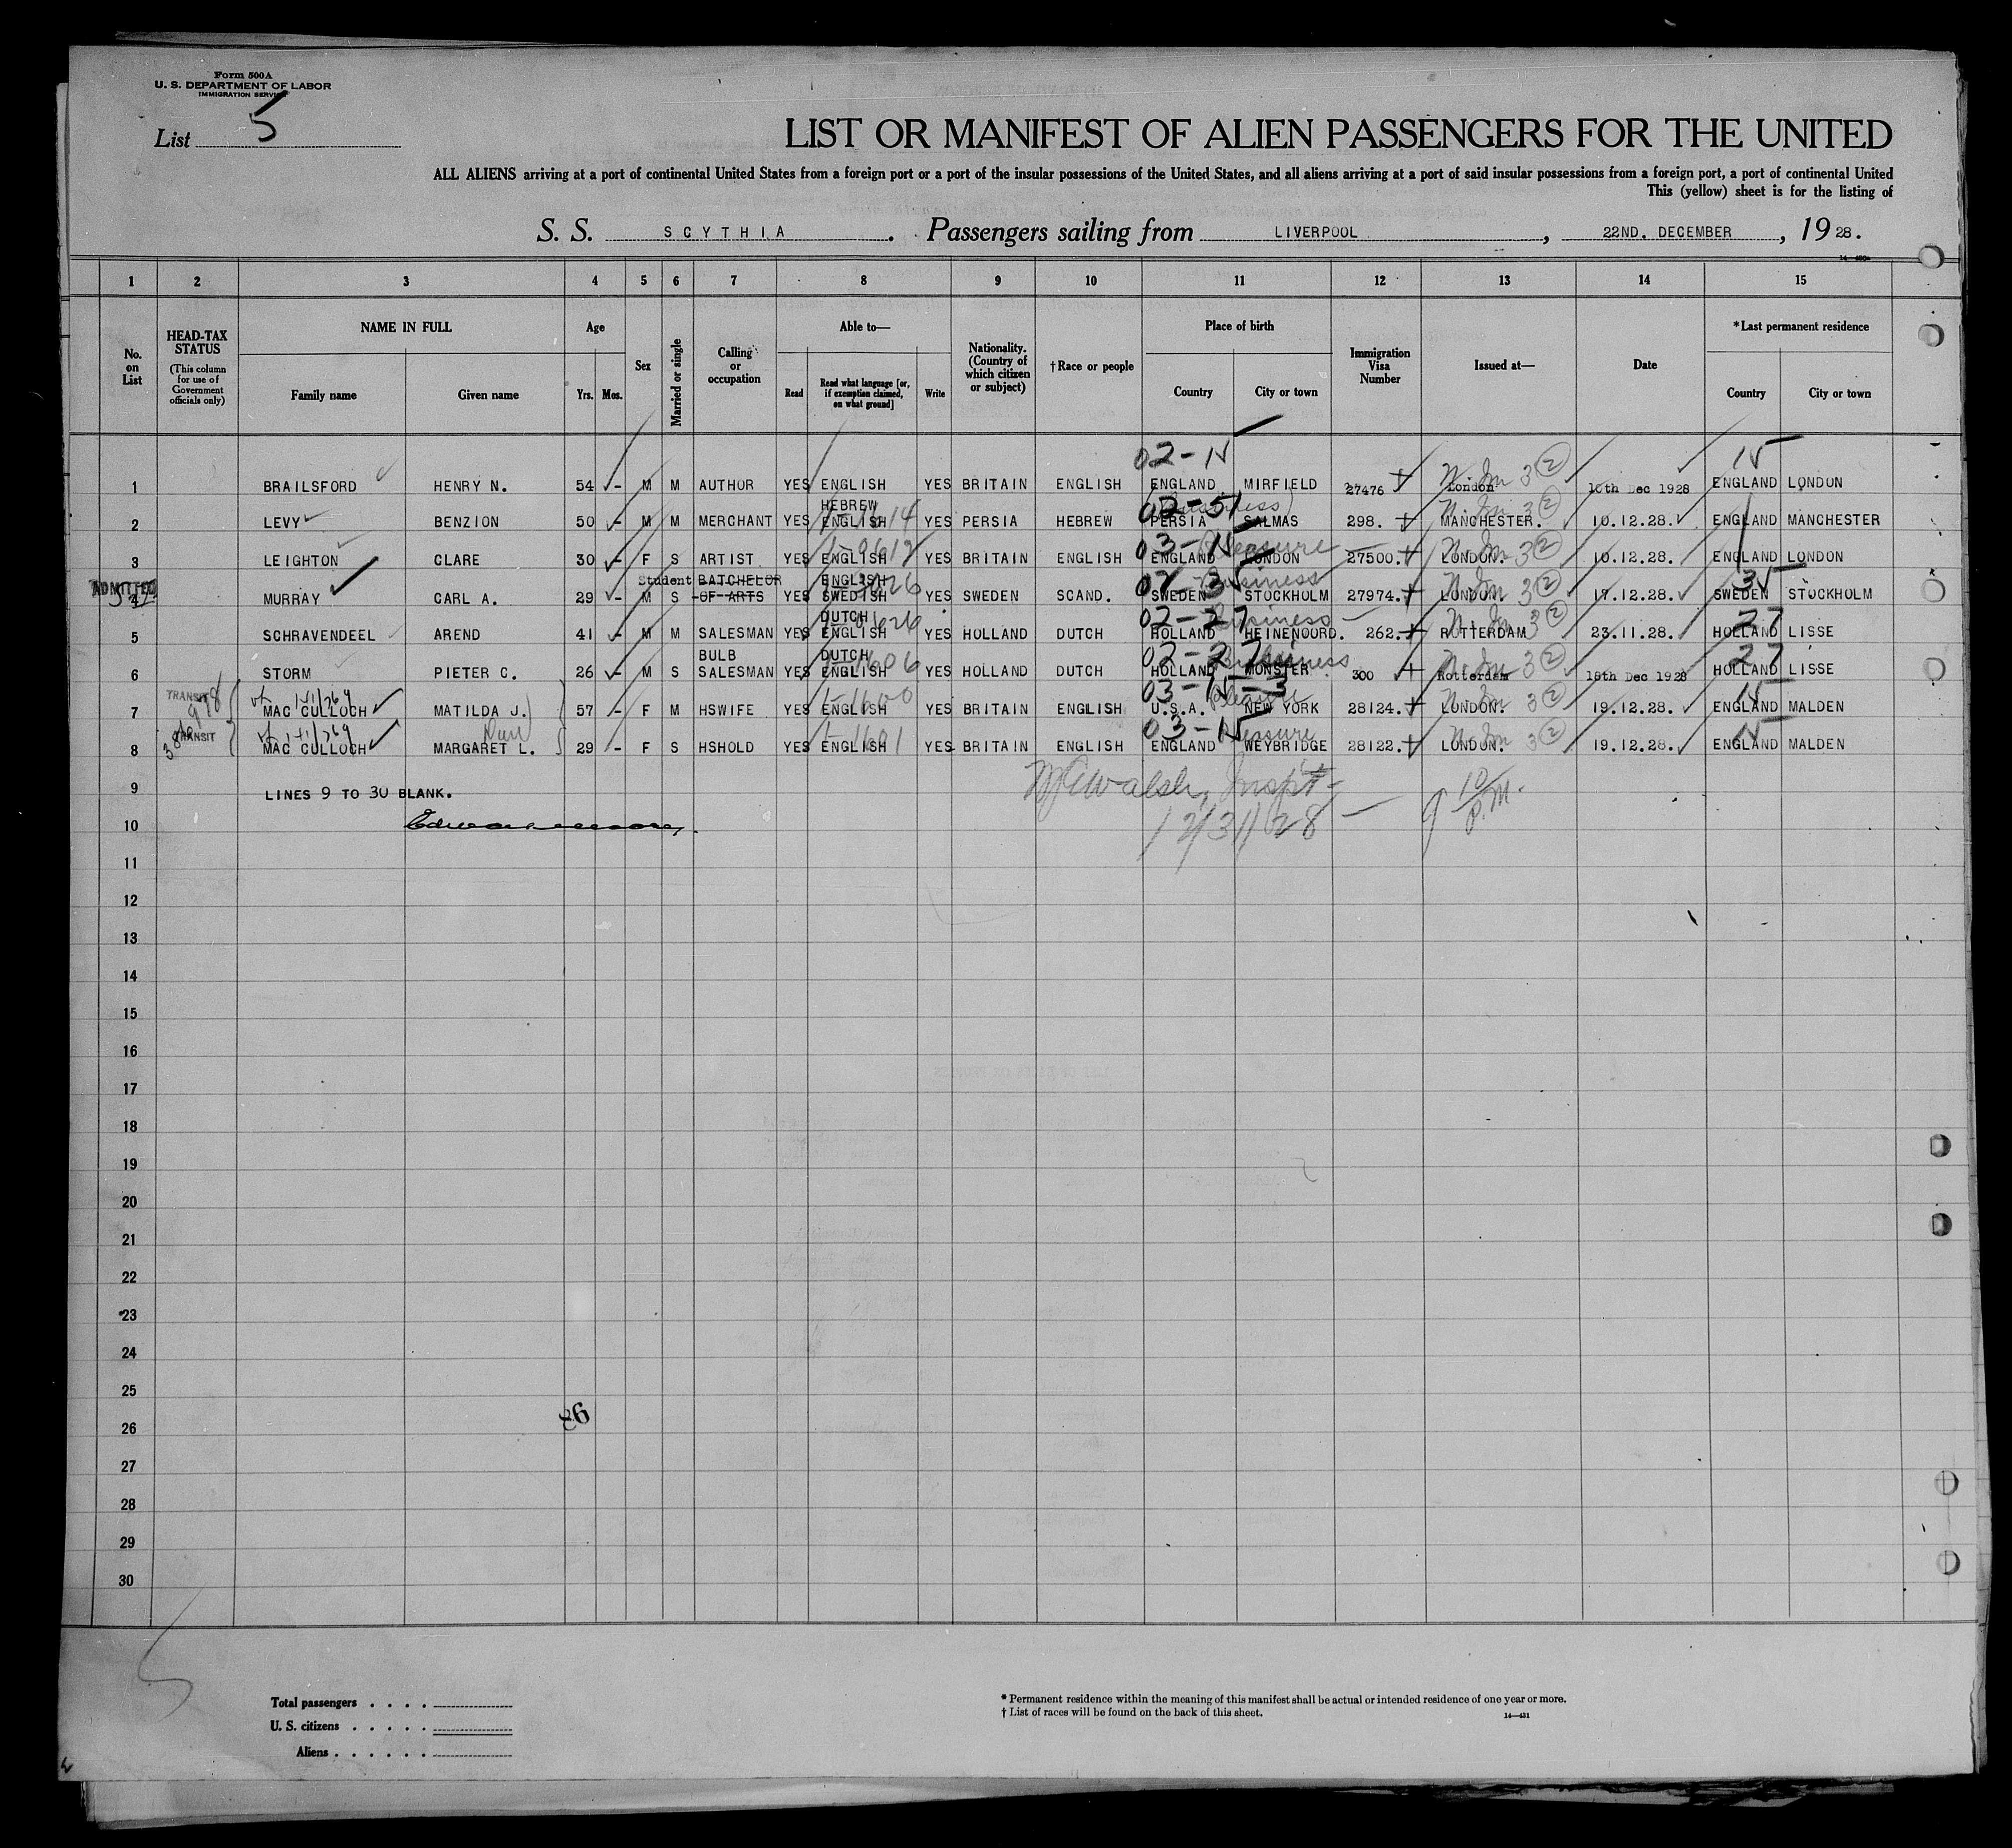 Form 500A
U. S. DEPARTMENT OF LABOR
IMMIGRATION SERVICE
List 5
LIST OR MANIFEST OF ALIEN PASSENGERS FOR THE UNITED
ALL ALIENS arriving at a port of continental United States from a foreign port or a port of the insular possessions of the United States, and all aliens arriving at a port of said insular possessions from a foreign port, a port of continental United
This (yellow) sheet is for the listing of
S. S. SCYTHIA. Passengers sailing from LIVERPOOL, 22ND. DECEMBER, 1928.
1 2 3 4 5 6 7 8 9 10 11 12 13 14 15
No. on List
HEAD-TAX STATUS
(This column for use of Government officials only)
NAME IN FULL
Family name Given name
Age
Yrs. Mos.
Sex
Married or single
Calling or occupation
Able to—
Read
Read what language [or, if exemption claimed, on what ground]
Write
Nationality. (Country of which citizen or subject)
†Race or people
Place of birth
Country City or town
Immigration Visa Number
Issued at—
Date
*Last permanent residence
Country City or town
02-15 15
1 BRAILSFORD HENRY N. 54 - M M AUTHOR YES ENGLISH YES BRITAIN ENGLISH ENGLAND MIRFIELD 27476 London 10th Dec 1928 ENGLAND LONDON
2 LEVY BENZION 50 - M M MERCHANT YES HEBREW ENGLISH YES PERSIA HEBREW PERSIA SALMAS 298. MANCHESTER. 10.12.28. ENGLAND MANCHESTER
3 LEIGHTON CLARE 30 - F S ARTIST YES ENGLISH YES BRITAIN ENGLISH ENGLAND LONDON 27500. LONDON. 10.12.28. ENGLAND LONDON
ADMITTED
4 MURRAY CARL A. 29 - M S Student BATCHELOR OF ARTS YES ENGLISH SWEDISH YES SWEDEN SCAND. SWEDEN STOCKHOLM 27974. LONDON. 17.12.28. SWEDEN STOCKHOLM
5 SCHRAVENDEEL AREND 41 - M M SALESMAN YES DUTCH ENGLISH YES HOLLAND DUTCH HOLLAND HEINENOORD. 262. ROTTERDAM 23.11.28. HOLLAND LISSE
6 STORM PIETER C. 26 - M S BULB SALESMAN YES DUTCH ENGLISH YES HOLLAND DUTCH HOLLAND MONSTER 300 Rotterdam 18th Dec 1928 HOLLAND LISSE
TRANSIT
7 MAC CULLOCH MATILDA J. 57 - F M HSWIFE YES ENGLISH YES BRITAIN ENGLISH U.S.A. NEW YORK 28124. LONDON. 19.12.28. ENGLAND MALDEN
TRANSIT
8 MAC CULLOCH MARGARET L. 29 - F S HSHOLD YES ENGLISH YES BRITAIN ENGLISH ENGLAND WEYBRIDGE 28122. LONDON. 19.12.28. ENGLAND MALDEN
9 LINES 9 TO 30 BLANK.
10
12/31/28
11
12
13
14
15
16
17
18
19
20
21
22
23
24
25
26
27
28
29
30
Total passengers . . . .
U. S. citizens . . . . .
Aliens . . . . . .
* Permanent residence within the meaning of this manifest shall be actual or intended residence of one year or more.
† List of races will be found on the back of this sheet.
14—431